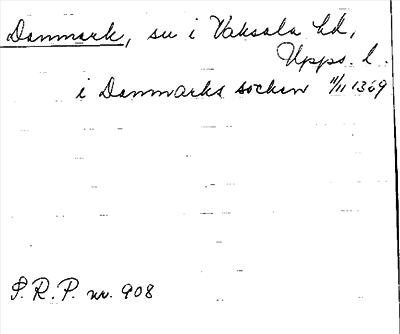 Danmark, sn i Vaksala hd,
Upps. l.
i Danmarks socken 11/11 1369
S.R.P. nr. 908